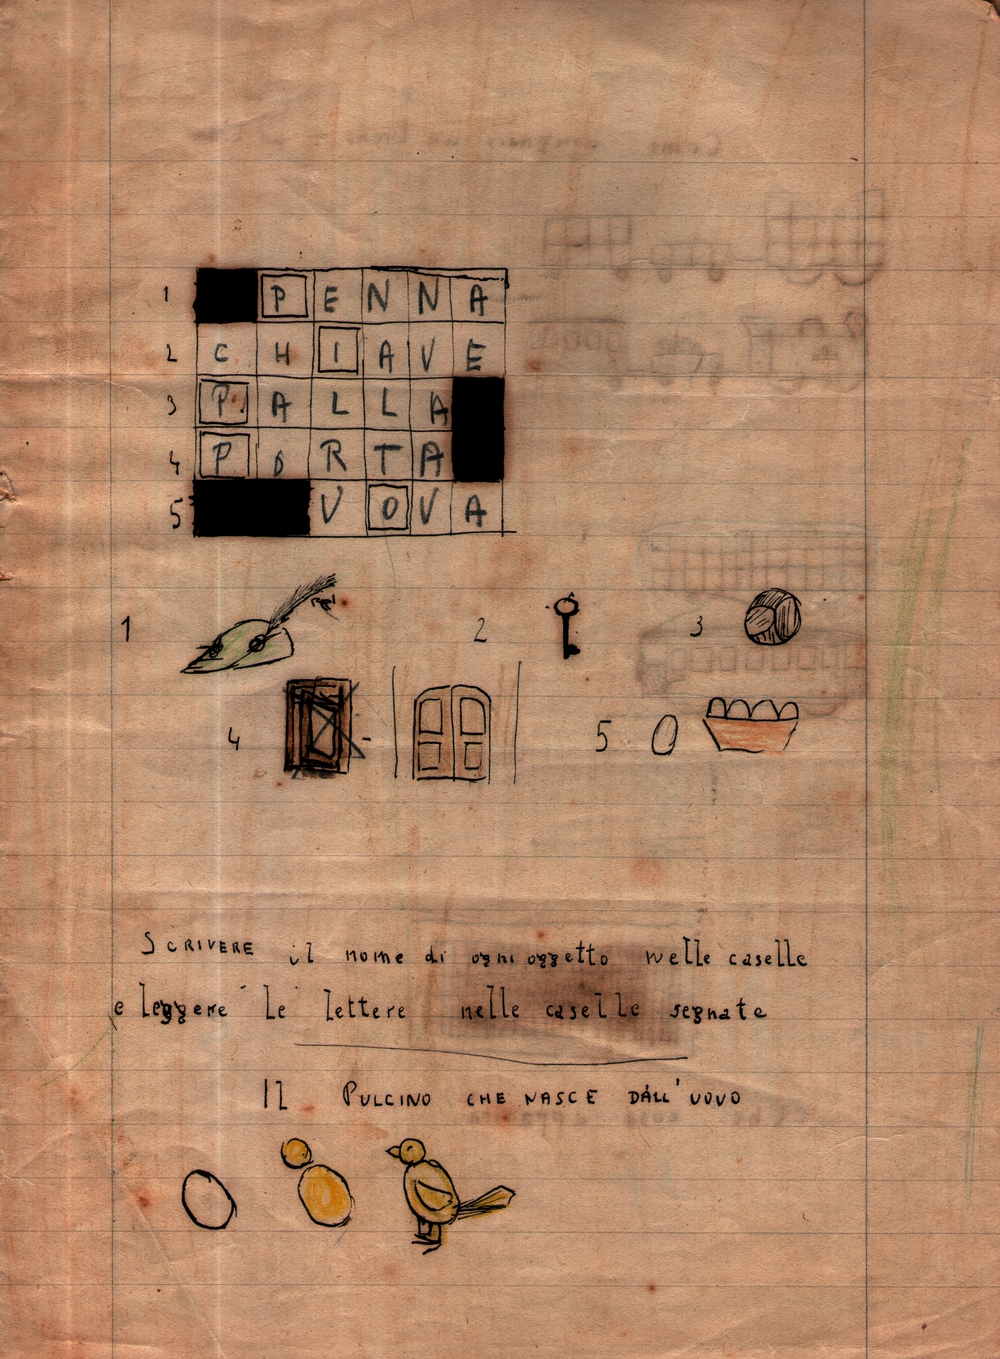 1 P E N N A
2 C H I A V E
3 P A L L A
4 P O R T A
5 V O V A
1 2 3
4 5
SCRIVERE il nome di ogni oggetto nelle caselle
e leggere le lettere nelle caselle segnate
IL PULCINO CHE NASCE DALL'UOVO